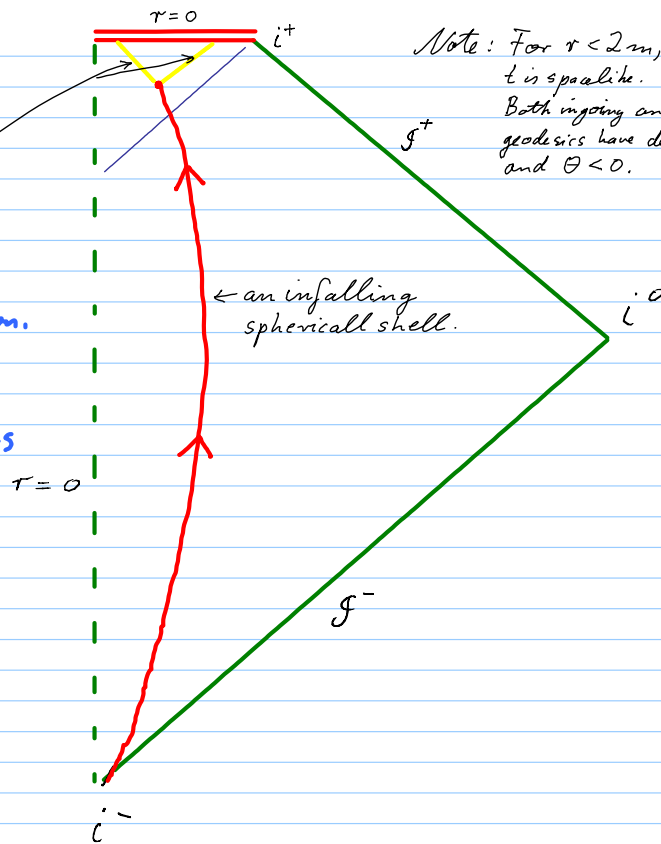 r=0
i⁺
Note: For r < 2m,
t is spacelike.
Both ingoing
geodesics have
and θ < 0.
𝓘⁺
← an infalling
sphericall shell.
i⁰
m.
s
r = 0
𝓘⁻
i⁻